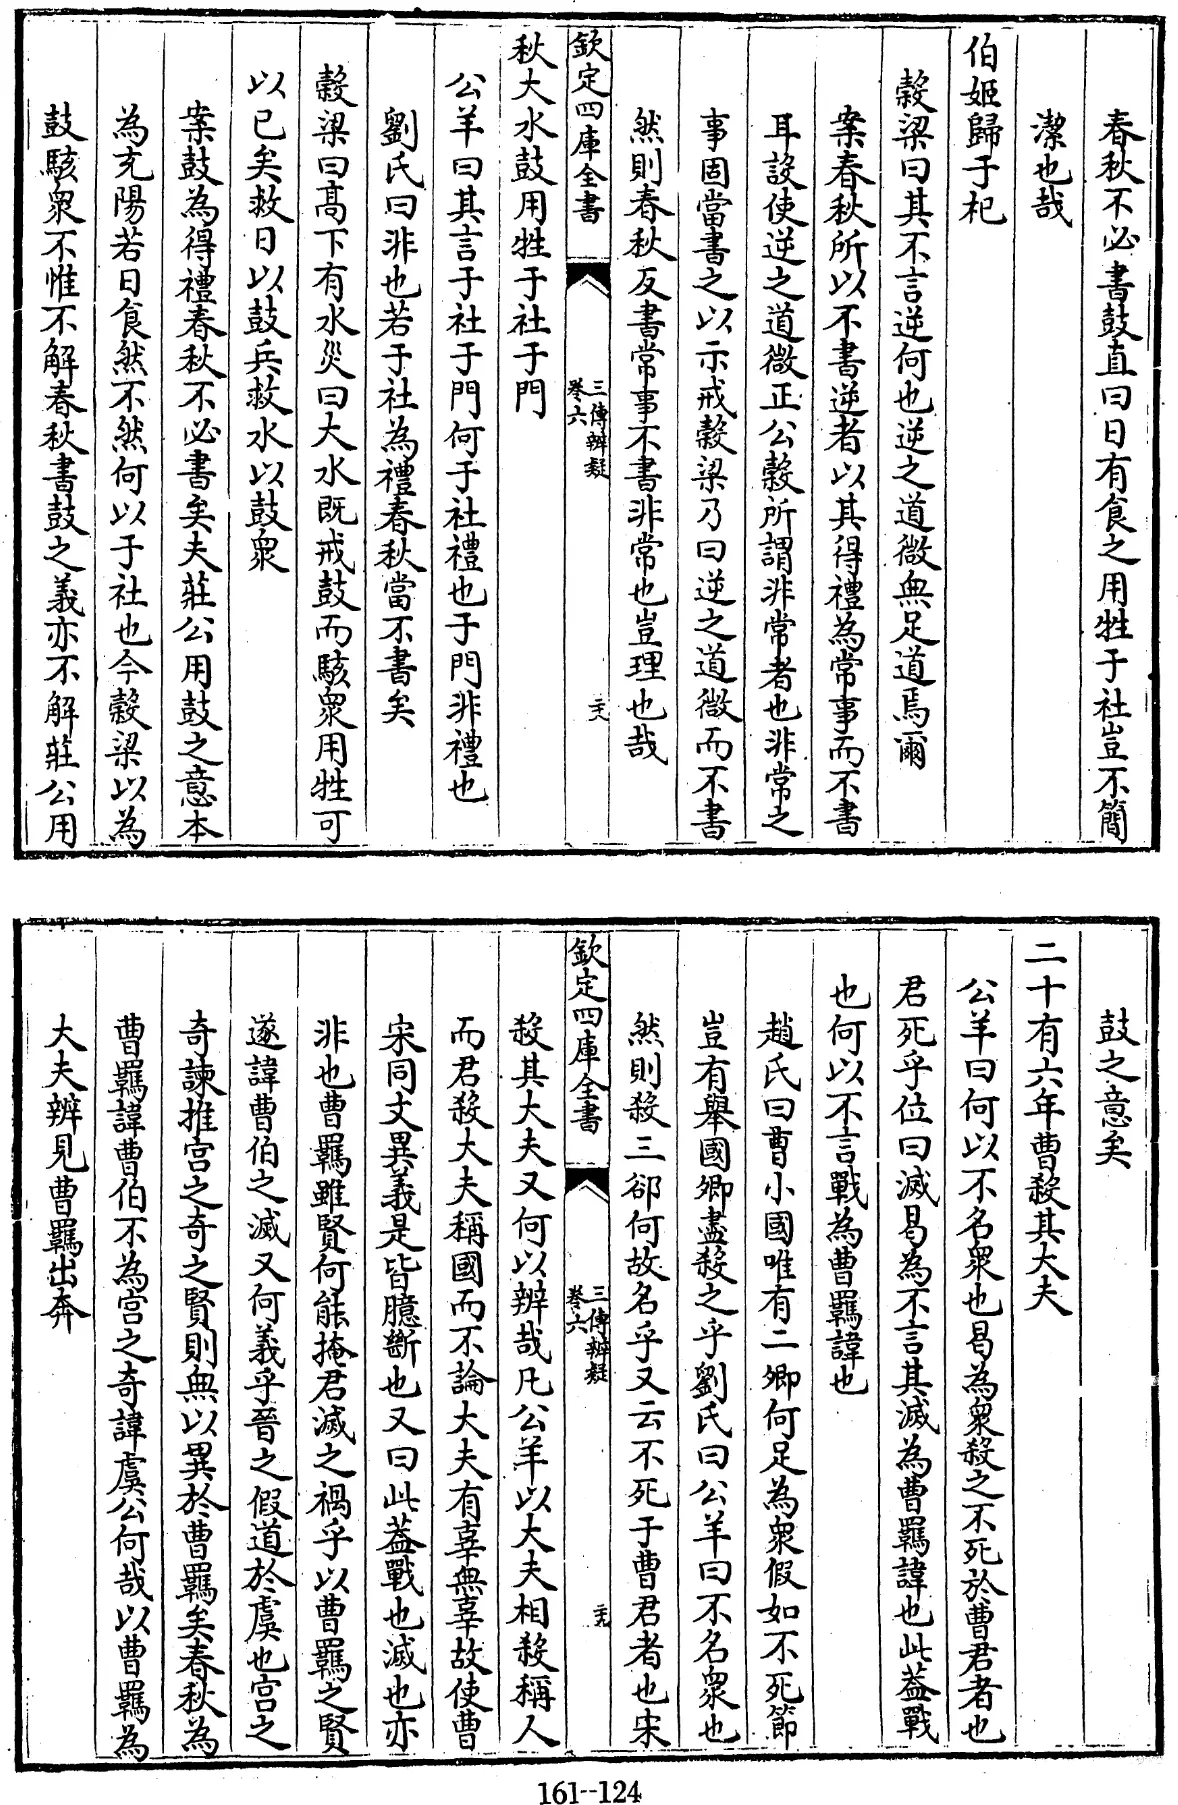 春秋不必書鼓直曰日有食之用牲于社豈不簡
潔也哉
伯姬歸于杞
穀梁曰其不言逆何也逆之道微無足道焉爾
案春秋所以不書逆者以其得禮為常事而不書
耳設使逆之道微正公穀所謂非常者也非常之
事固當書之以示戒穀梁乃曰逆之道微而不書
然則春秋反書常事不書非常也豈理也哉
欽定四庫全書
三傳辨疑
卷六
二十八
秋大水鼓用牲于社于門
公羊曰其言于社于門何于社禮也于門非禮也
劉氏曰非也若于社為禮春秋當不書矣
穀梁曰高下有水災曰大水既戒鼓而駭衆用牲可
以已矣救日以鼓兵救水以鼓衆
案鼓為得禮春秋不必書矣夫莊公用鼓之意本
為充陽若日食然不然何以于社也今穀梁以為
鼓駭衆不惟不解春秋書鼓之義亦不解莊公用
鼓之意矣
二十有六年曹殺其大夫
公羊曰何以不名衆也曷為衆殺之不死於曹君者也
君死乎位曰滅曷為不言其滅為曹羈諱也此蓋戰
也何以不言戰為曹羈諱也
趙氏曰曹小國唯有二卿何足為衆假如不死節
豈有舉國卿盡殺之乎劉氏曰公羊曰不名衆也
然則殺三郤何故名乎又云不死于曹君者也宋
欽定四庫全書
三傳辨疑
卷六
二十九
殺其大夫又何以辨哉凡公羊以大夫相殺稱人
而君殺大夫稱國而不論大夫有辜無辜故使曹
宋同文異義是皆臆斷也又曰此蓋戰也滅也亦
非也曹羈雖賢何能掩君滅之禍乎以曹羈之賢
遂諱曹伯之滅又何義乎晉之假道於虞也宮之
奇諫推宮之奇之賢則無以異於曹羈矣春秋為
曹羈諱曹伯不為宮之奇諱虞公何哉以曹羈為
大夫辨見曹羈出奔
161--124